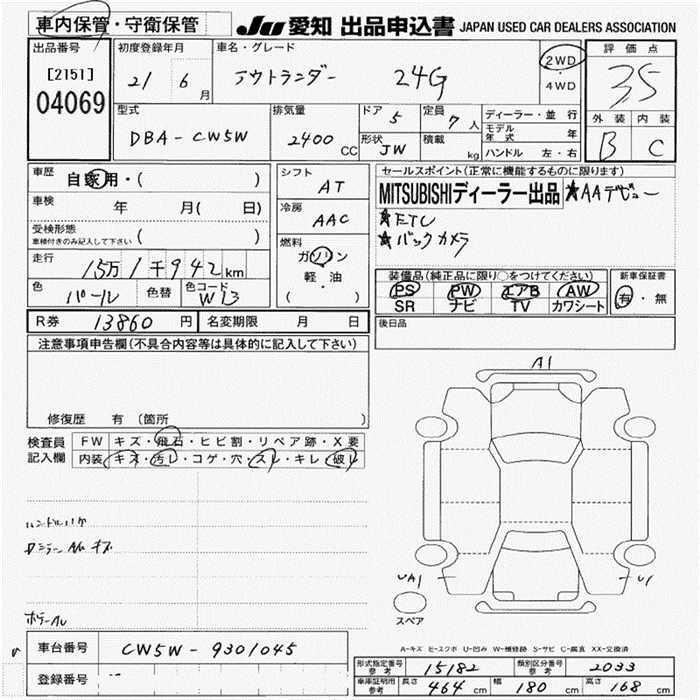 車内保管・守衛保管
JU 愛知 出品申込書 JAPAN USED CAR DEALERS ASSOCIATION
出品番号
[2151]
04069
初度登録年月
21 6 月
車名・グレード
アウトランダー 24G
2WD
・
4WD
評価点
3.5
外装 内装
B C
型式
DBA-CW5W
排気量
2400 CC
ドア 5
形状 JW
定員 7 人
積載 kg
ディーラー・並行
モデル年式 年
ハンドル 左・右
車歴 自家用・( )
車検 年 月( 日)
受検形態
車検付きのみ記入して下さい ( )
走行 15万1千942km
色 パール 色替 色コード W23
シフト AT
冷房 AAC
燃料
ガソリン
・
軽・油
( )
R券 13860 円 名変期限 月 日
セールスポイント(正常に機能するものに限ります)
MITSUBISHIディーラー出品 ★AAデビュー
★ETC
★バックカメラ
装備品(純正品に限り○をつけてください)
PS PW エアB AW
SR ナビ TV カワシート
新車保証書
有・無
後日品
注意事項申告欄(不具合内容等は具体的に記入して下さい)
修復歴 有(箇所 )
検査員記入欄
FW キズ・飛石・ヒビ割・リペア跡・X要
内装 キズ・汚レ・コゲ・穴・スレ・キレ・破レ
ハンドルハゲ
キズ
A1
UA1
U1
スペア
A-キズ E-エクボ U-凹み W-補修跡 S-サビ C-腐食 XX-交換済
車台番号 CW5W-9301045
登録番号
形式指定番号 参考 15182 類別区分番号 参考 2033
車庫証明用 参考 長さ 464 cm 幅 180 cm 高さ 168 cm